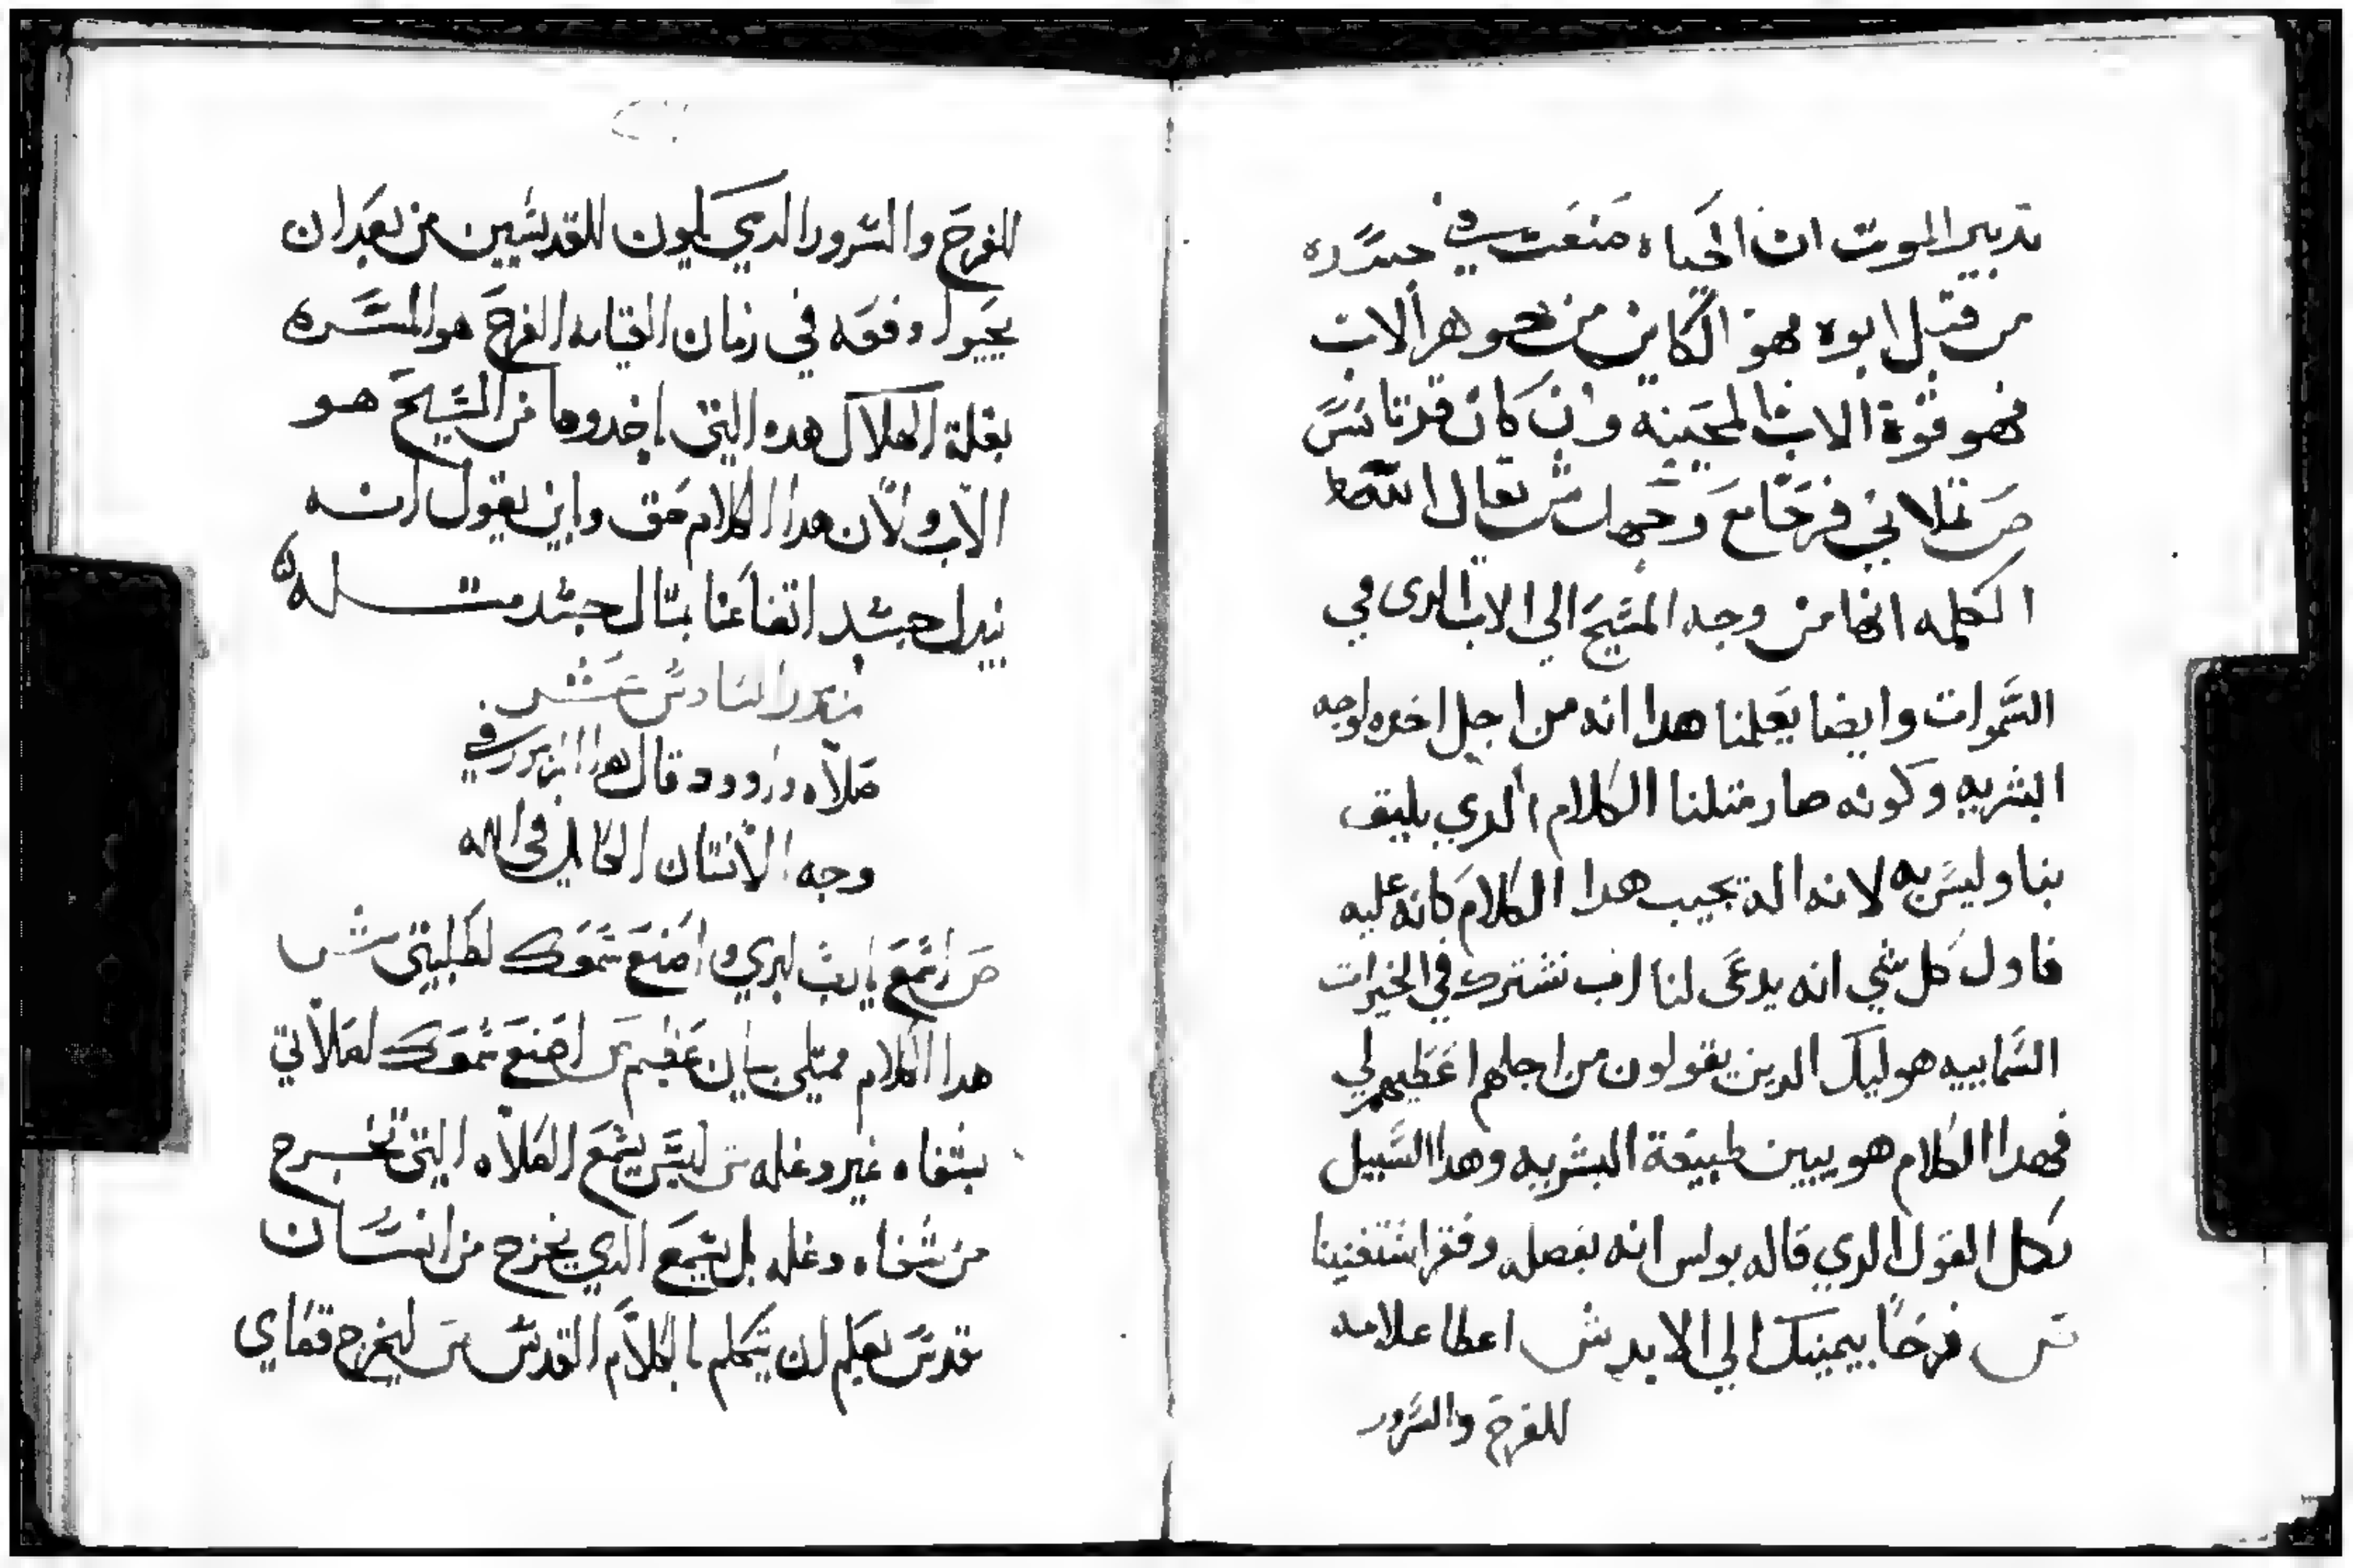 تدبير الموت ان الحياه صنعت في جسده
من قبل ابوه فهو الكاين من جوهر الاب
فهو قوة الاب المحييه وان كان قد تانس
ص تملاني فرحا مع وجهك ش يقال
الكلمه انها من وجه المسيح الي الاب الدى في
السموات وايضا يعلمنا هدا انه من اجل اخده لوجه
البشريه وكونه صار متلنا الكلام الدي يليق
بنا وليس به لانه اله يجيب هدا الكلام كانه عليه
فاول كل شي انه يدعى لنا ان نشترك في الخيرات
السماييه هوليك الدين يقولون من اجلهم اعطيهم لي
فهدا الكلام هو يبين طبيعة البشريه وهدا السبيل
بكل القول الدي قاله بولس انه بفضله وفقرا ستغنينا
ص فرحا بيمينك الي الابد ش اعطا علامه
للفرح والسرور
للفرح والسرور الدي يكون للقديسين من بعد ان
يحيوا دفعه في زمان القيامه الفرح هو المسره
بغلة الهلاك هده التي اخدوها من المسيح هو
الاب ولان هدا الكلام حق واين يقول انه
يبدل جسد اتضاعنا بمتال جسد متله
مزمور السادس عشر
صلاه داوود قال هدا المزمور في
وجه الانسان الكامل في الله
ص اسمع يا رب لبري واصنع سمعك لطلبتي ش
هدا الكلام ممتلي بيان عظيم ص اصنع سمعك لصلاتي
بشفاه غير دغله ش ليس يسمع الصلاه التي تخرج
من شفاه دغله بل يسمع الدي يخرج من انسان
قديس يعلم ان يتكلم بالكلام القدس ص ليخرج قضاي